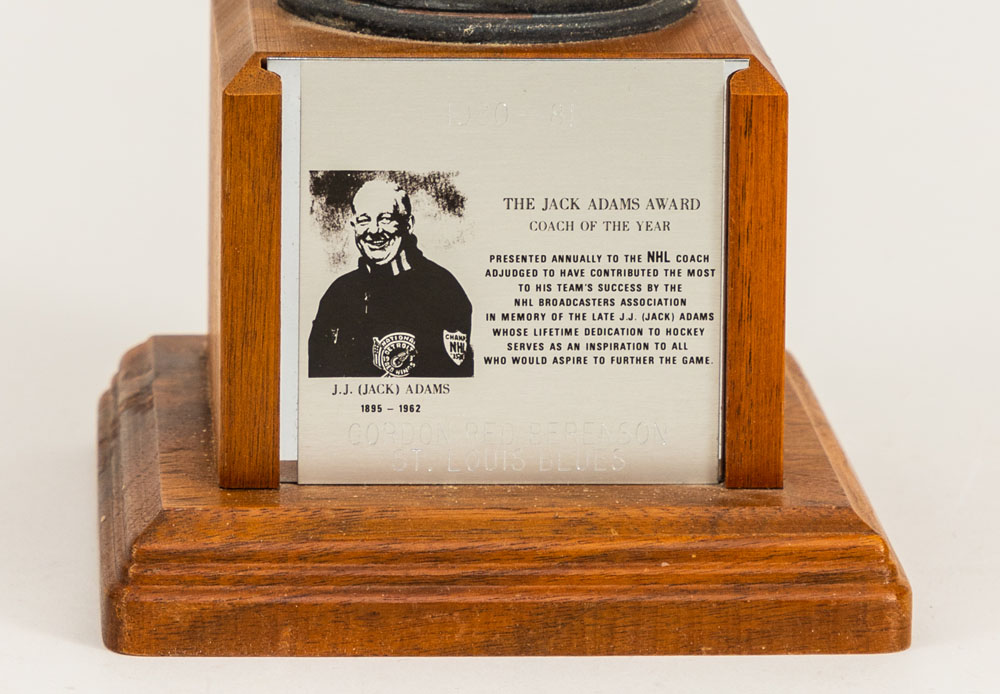 1980-81
THE JACK ADAMS AWARD
COACH OF THE YEAR
PRESENTED ANNUALLY TO THE NHL COACH
ADJUDGED TO HAVE CONTRIBUTED THE MOST
TO HIS TEAM'S SUCCESS BY THE
NHL BROADCASTERS ASSOCIATION
IN MEMORY OF THE LATE J.J. (JACK) ADAMS
WHOSE LIFETIME DEDICATION TO HOCKEY
SERVES AS AN INSPIRATION TO ALL
WHO WOULD ASPIRE TO FURTHER THE GAME.
NATIONAL
DETROIT
RED WINGS
CHAMP
NHL
J.J. (JACK) ADAMS
1895 – 1962
GORDON RED BERENSON
ST. LOUIS BLUES